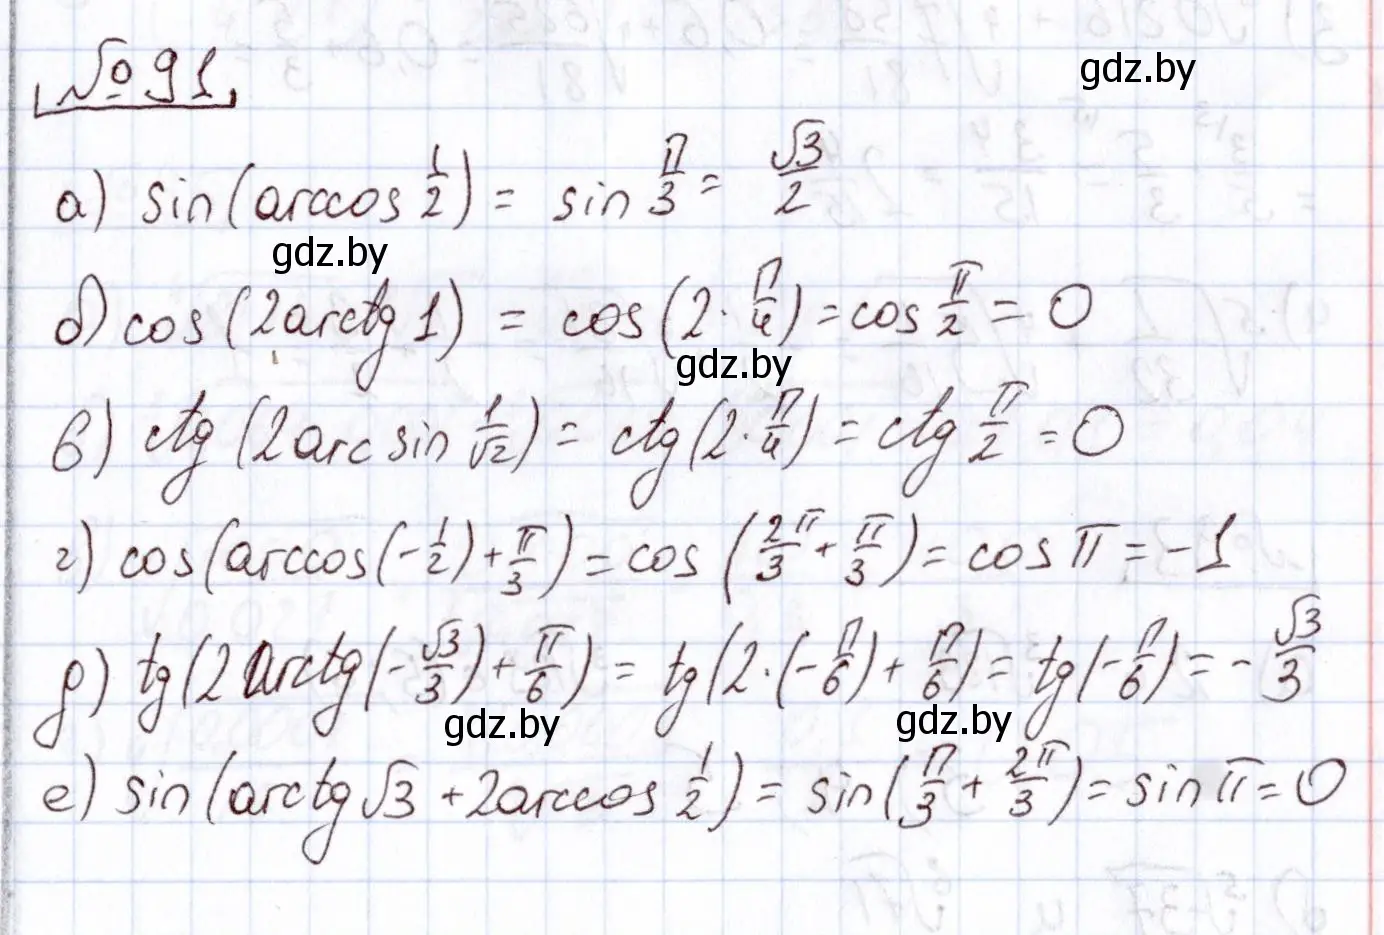 №91
gdz.by
а) sin(arccos 1/2) = sin π/3 = √3/2
gdz.by
б) cos(2arctg 1) = cos(2·π/4) = cos π/2 = 0
gdz.by
в) ctg(2arcsin 1/√2) = ctg(2·π/4) = ctg π/2 = 0
г) cos(arccos(-1/2)+π/3) = cos(2π/3+π/3) = cos π = -1
д) tg(2arctg(-√3/3)+π/6) = tg(2·(-π/6)+π/6) = tg(-π/6) = -√3/3
gdz.by gdz.by
е) sin(arctg√3+2arccos 1/2) = sin(π/3+2π/3) = sin π = 0